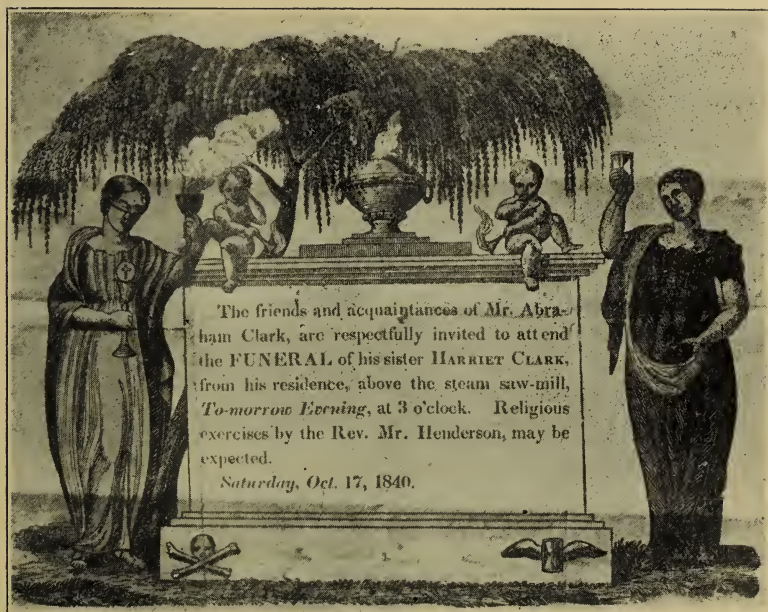 The friends and acquaintances of Mr. Abra-
ham Clark, are respectfully invited to attend
the FUNERAL of his sister HARRIET CLARK,
from his residence, above the steam saw-mill,
To-morrow Evening, at 3 o'clock. Religious
exercises by the Rev. Mr. Henderson, may be
expected.
Saturday, Oct. 17, 1840.